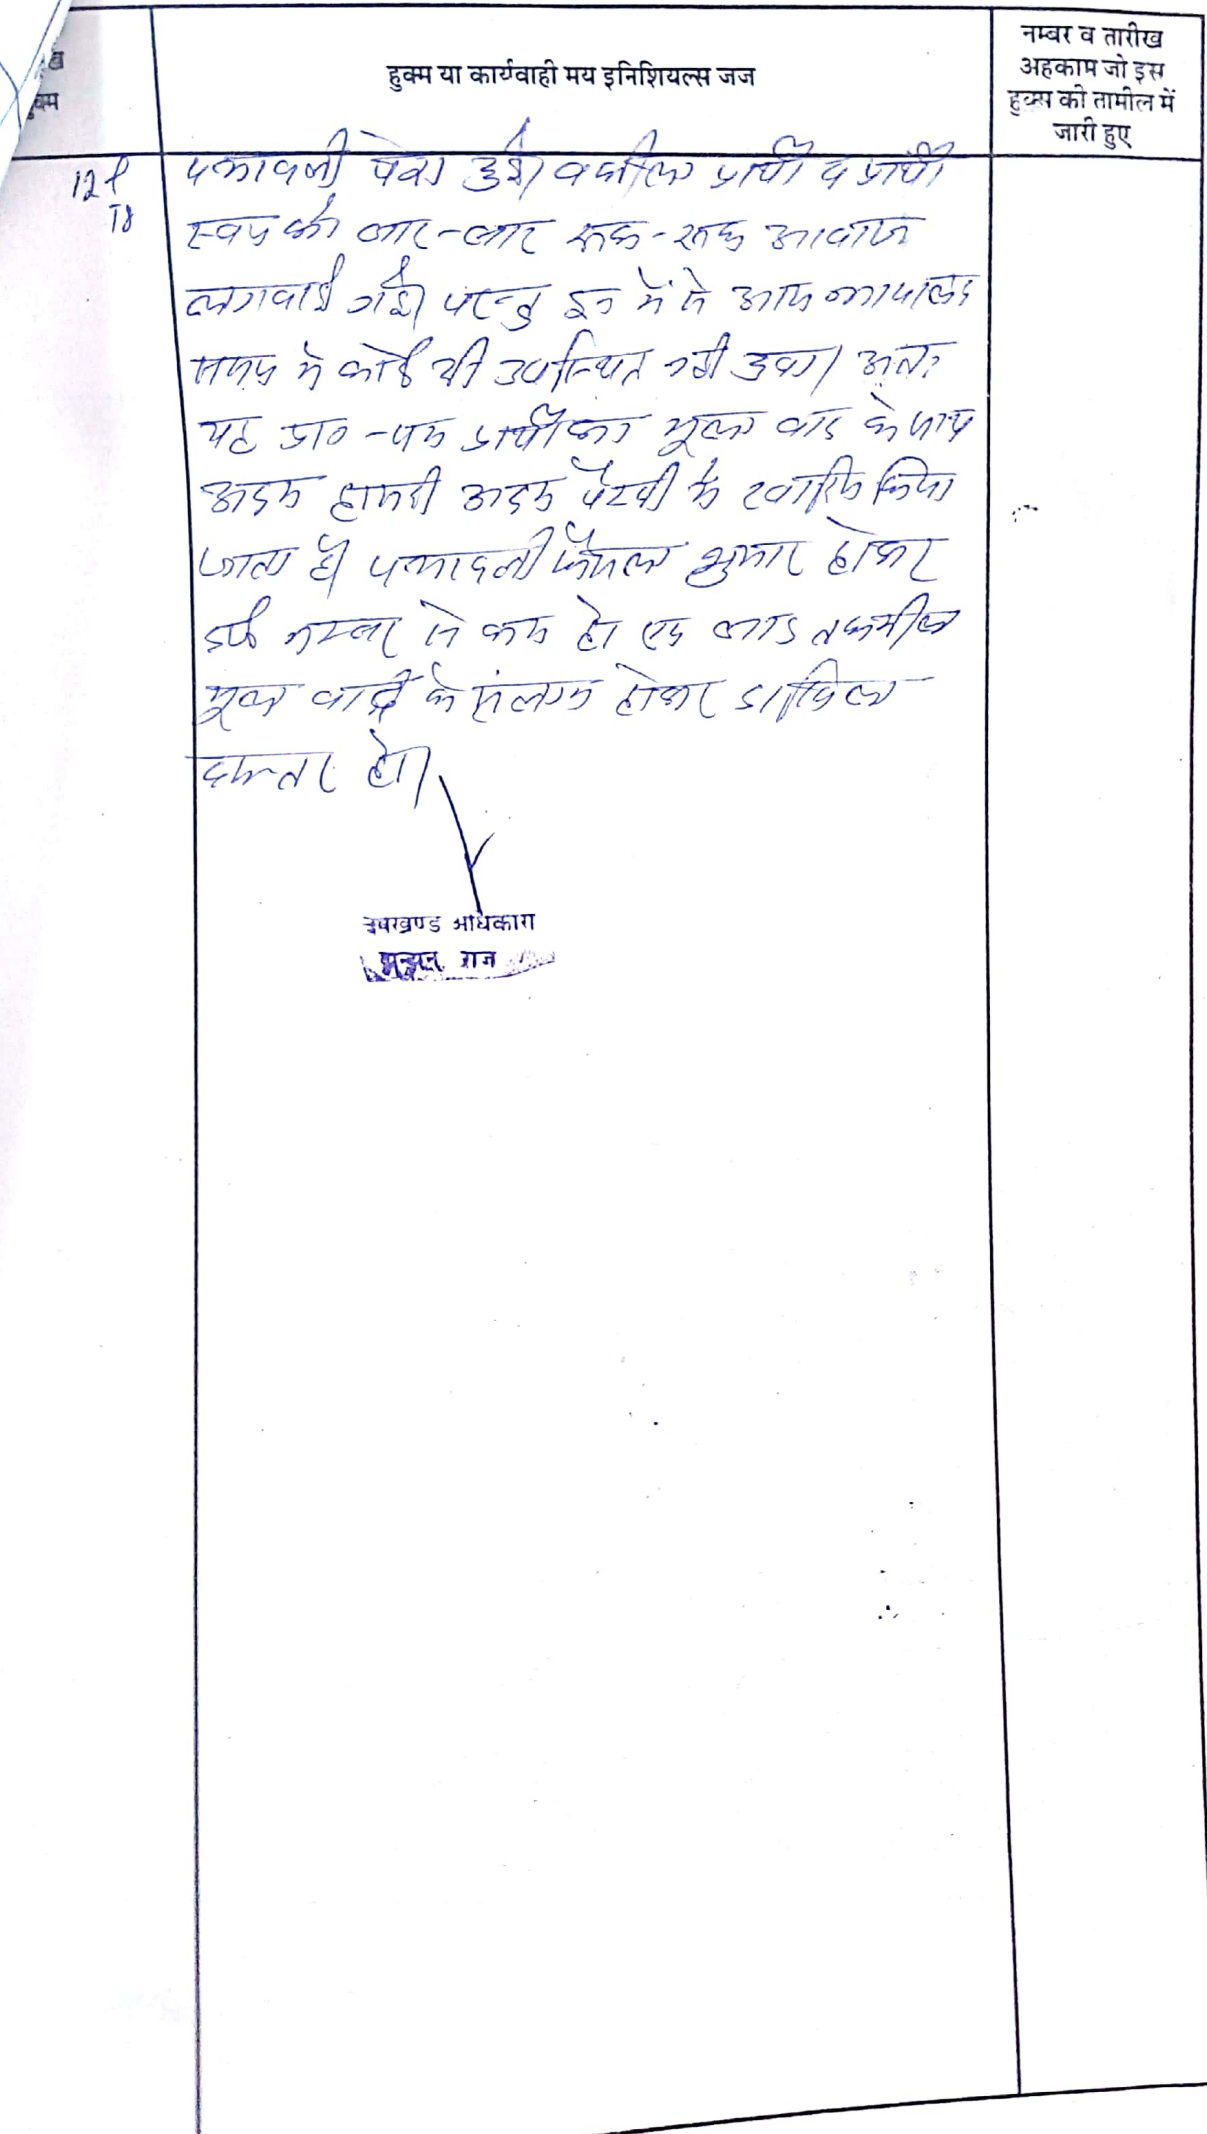 नम्बर व तारीख
अहकाम जो इस
हुक्म की तामील में
जारी हुए
हुक्म या कार्यवाही मय इनिशियल्स जज
पत्रावली पेश हुई। वकील प्रार्थी व प्रार्थी
स्वयं को बार-बार रूक-रूक आवाज
लगवाई गई। परन्तु इन में से आज न्यायालय
समय में कोई भी उपस्थित नहीं हुवा। अतः
यह प्रा० पत्र प्रार्थी का मूल वाद के साथ
अदम हाजरी अदम पैरवी में खारिज किया
जाता है। पत्रावली फैसल शुमार होकर
दर्ज नम्बर से कम हो एवं बाद तकमील
मूल वाद के संलग्न होकर दाखिल
दफ्तर हो।
उपखण्ड अधिकारी